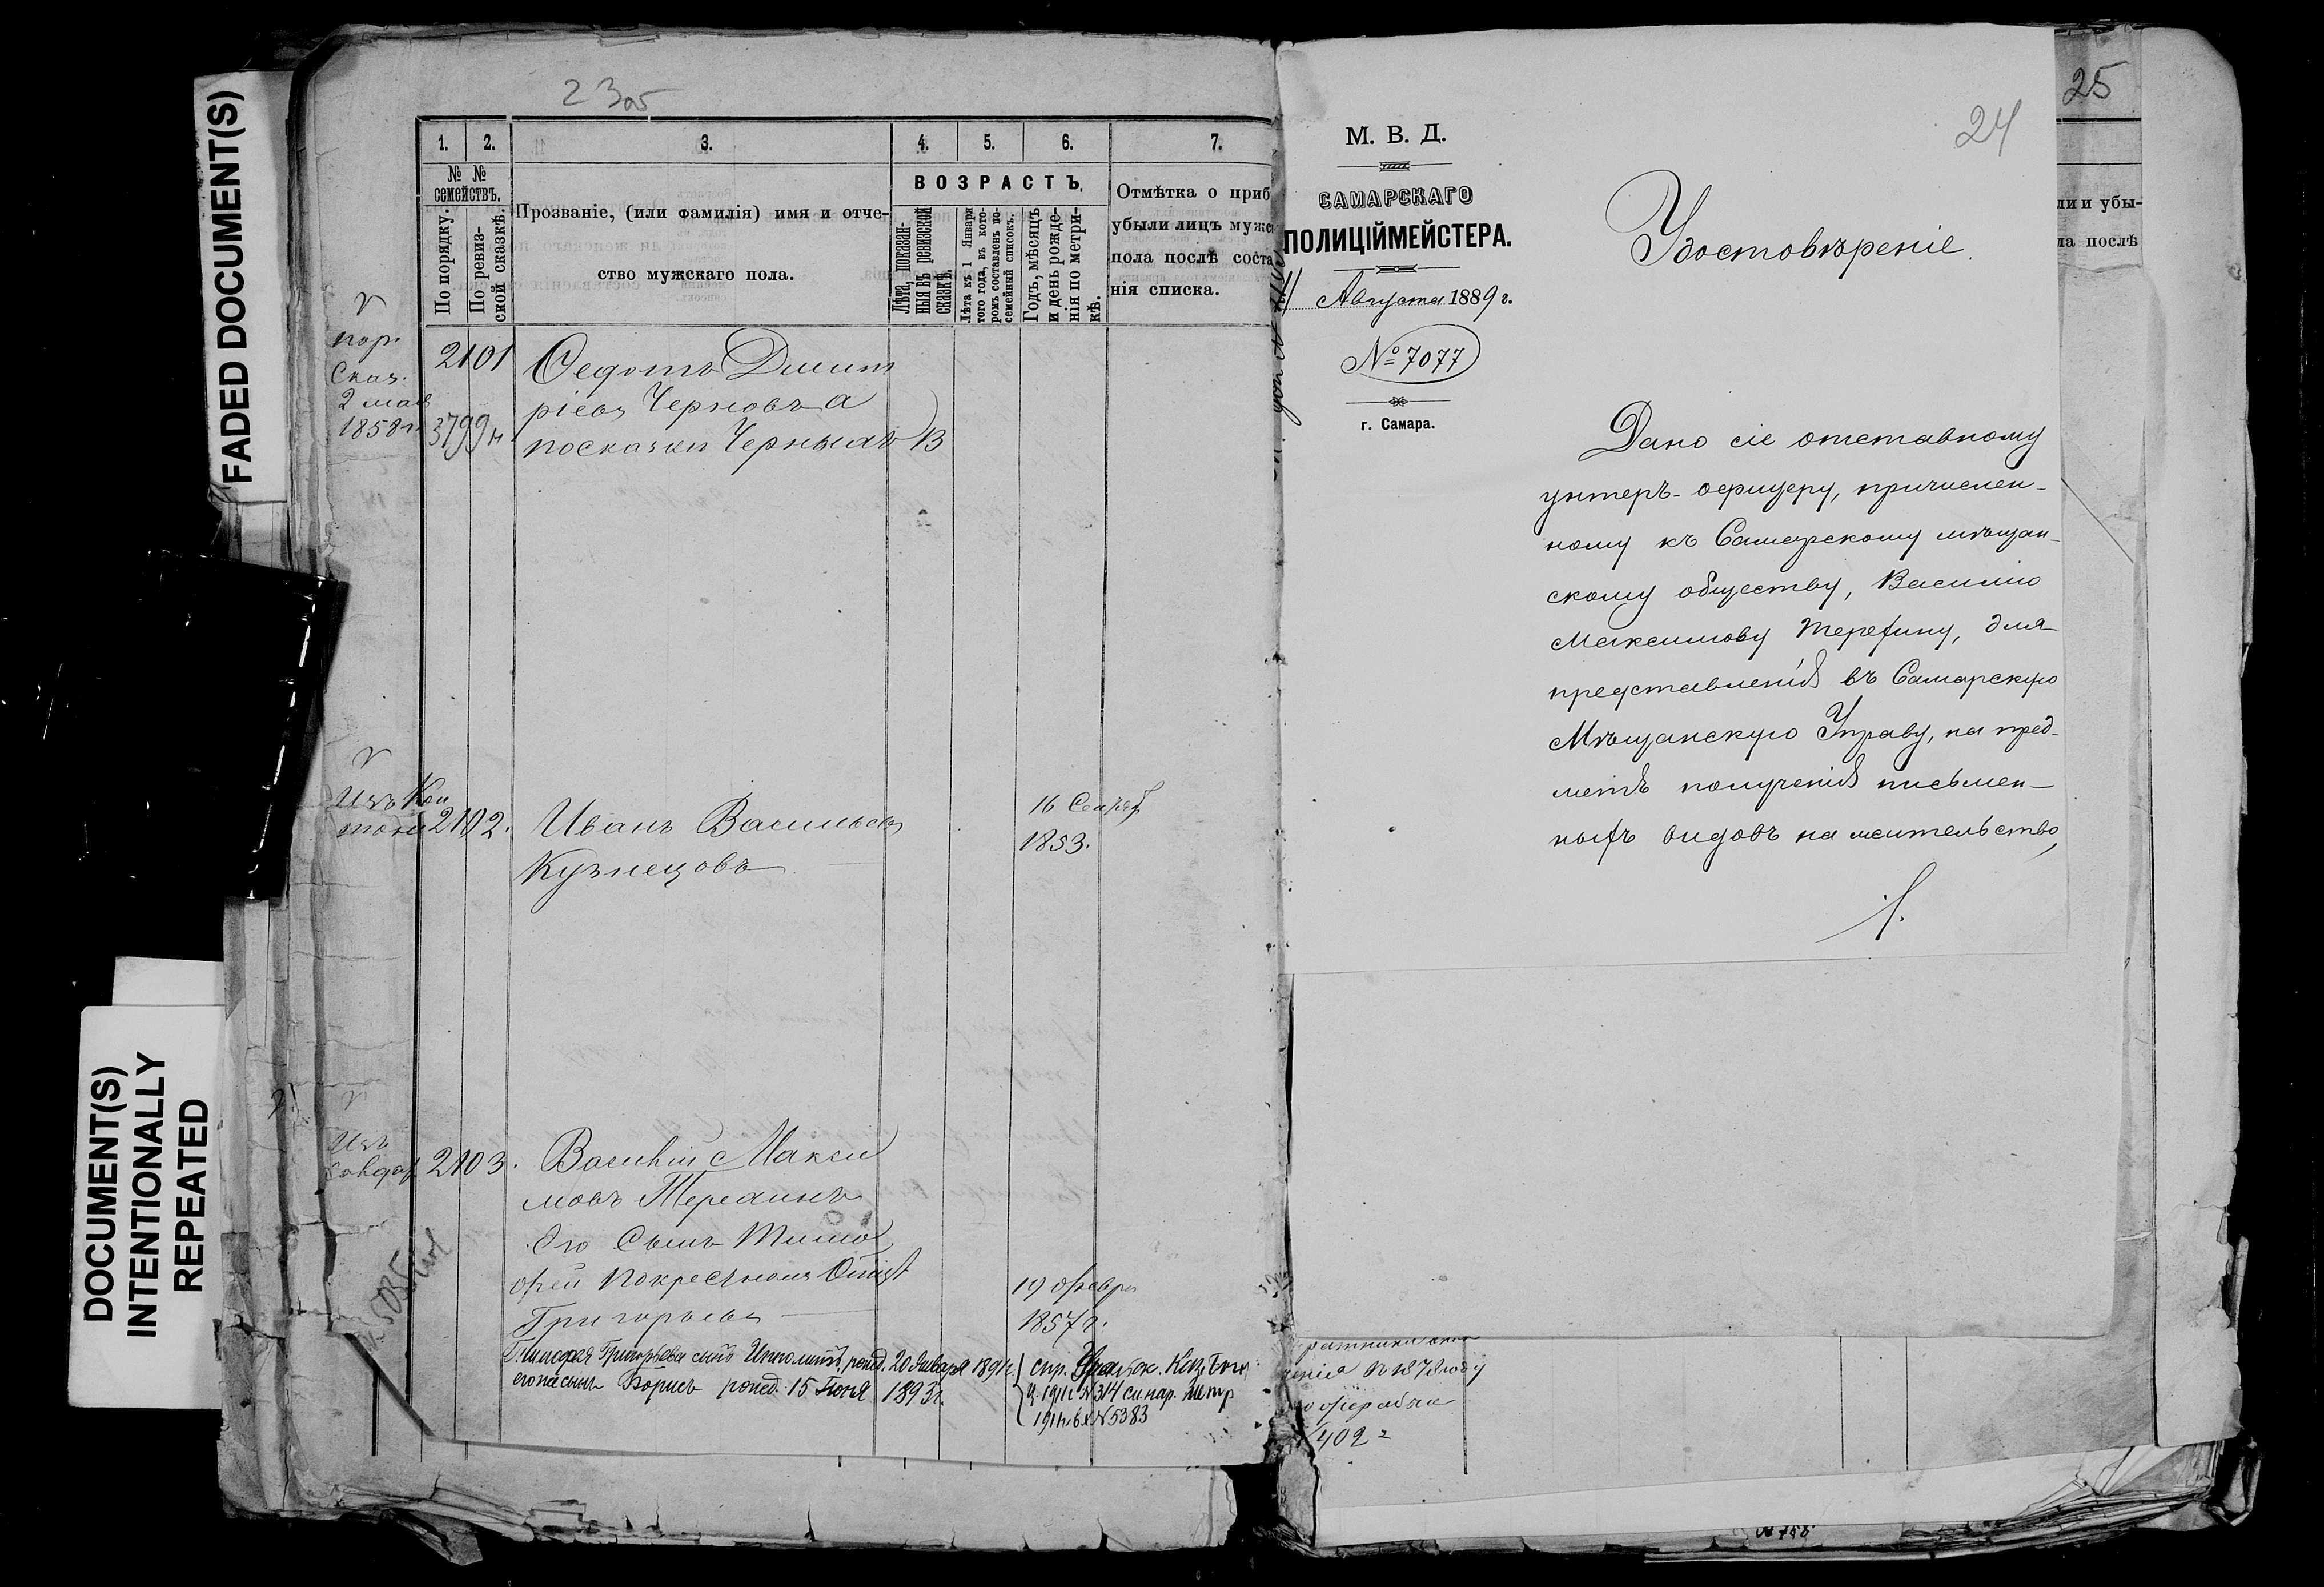 FADED DOCUMENT(S)
DOCUMENT(S)
INTENTIONALLY
REPEATED
23об
1. 2. 3. 4. 5. 6. 7.
№ №
семействъ.
По порядку.
По ревиз-
ской сказкѣ.
Прозваніе, (или фамилія) имя и отче-
ство мужскаго пола.
ВОЗРАСТЪ.
Лѣта, показан-
ныя въ ревизской
сказкѣ.
Лѣта къ 1 Января
того года, въ кото-
ромъ составленъ по-
семейный списокъ.
Годъ, мѣсяцъ
и день рожде-
нія по метри-
кѣ.
Отмѣтка о приб
убыли лицъ мужс
пола послѣ соста
нія списка.
Сказ.
2 мая
1858 г.
2101
3799
Ѳедотъ Димит
ріевъ Черновъ а
по сказки Черныхъ 13
Изъ Кан
тон 2102.
Иванъ Васильевъ
Кузнецовъ
16 Сентяб
1853.
Изъ
Солдат 2103.
Василій Макси
мовъ Терехинъ
Его Сынъ Тимо
фей по крестному Отцу
Григорьевъ
19 февра
1857 г.
Тимофея Григорьева сынъ Ипполитъ, рожд. 20 Января 1891 г.
его же сынъ Борисъ рожд. 15 Іюня 1895 г.
1911 г. № 314
№ 5383
1878 году
402
24
М. В. Д.
САМАРСКАГО
ПОЛИЦІЙМЕЙСТЕРА.
11 Августа 1889 г.
№ 7077
г. Самара.
Удостовѣреніе.
Дано сіе отставному
унтеръ-офицеру, причислен-
ному къ Самарскому мѣщан-
скому обществу, Василію
Максимову Терехину, для
представленія въ Самарскую
Мѣщанскую Управу, на пред-
метъ полученія письмен-
ныхъ видовъ на жительство,
25
ли и убы-
ла послѣ